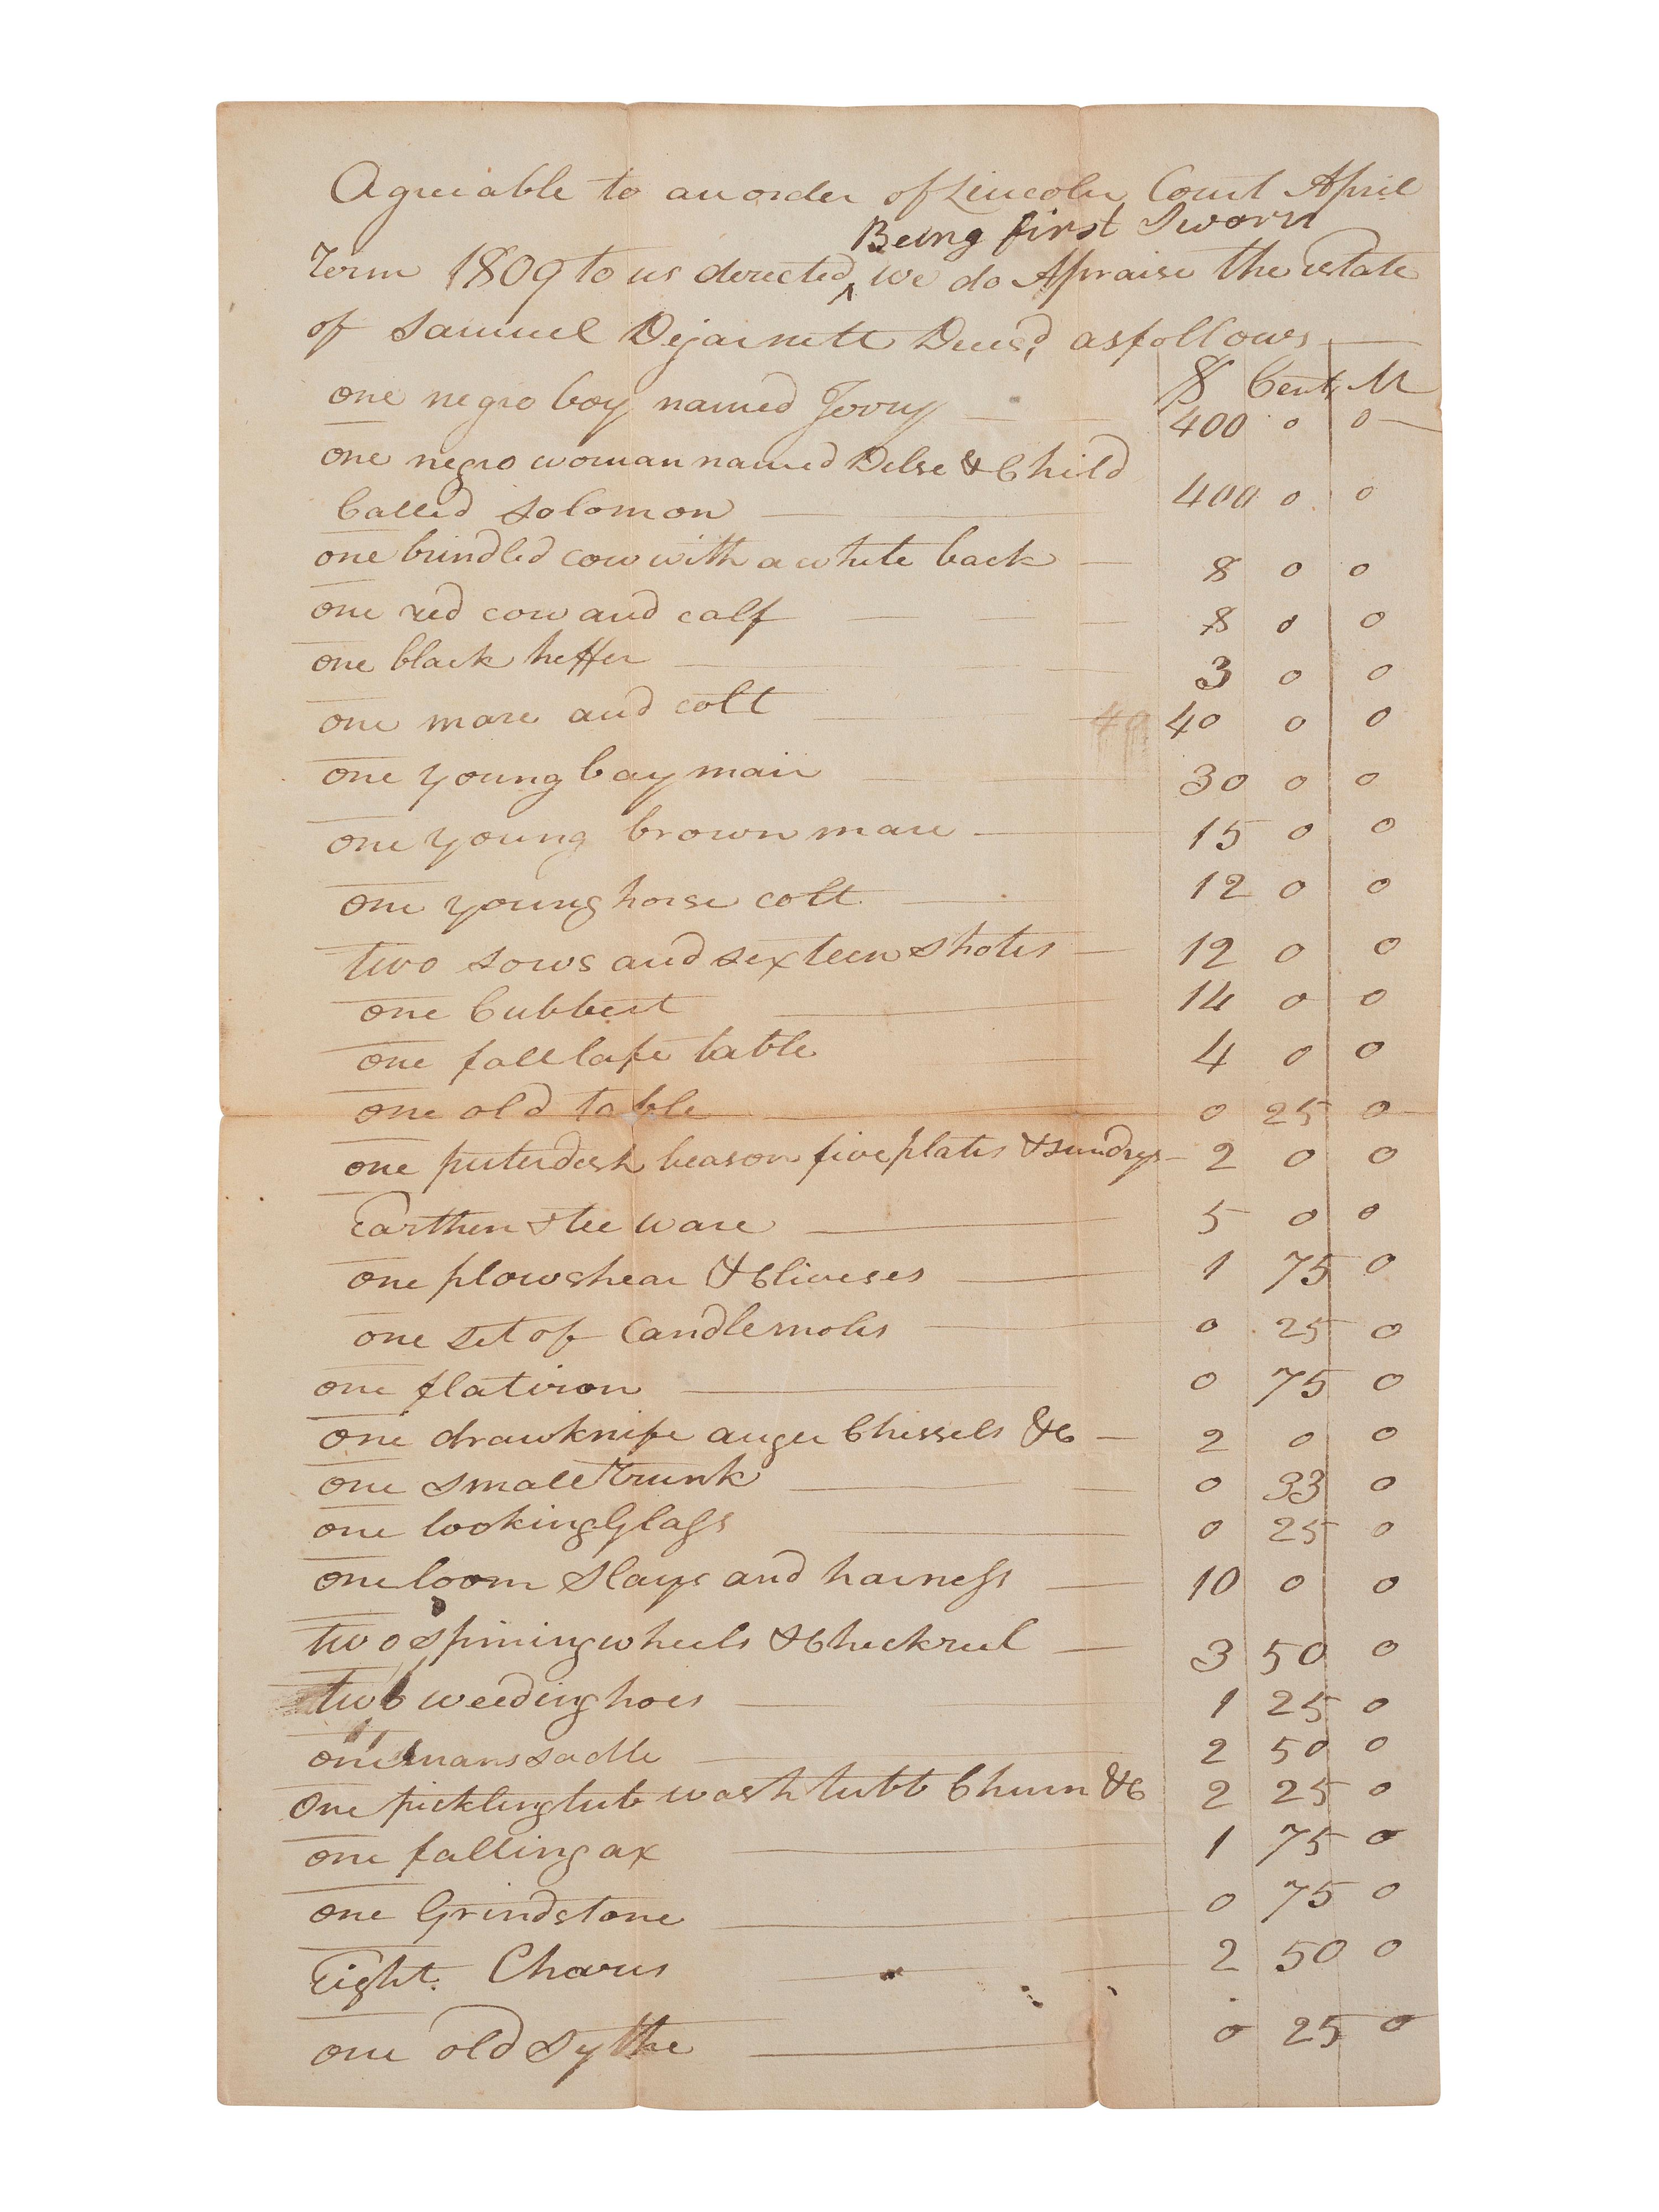 Agreeable to an order of Lincoln Court April
Being first Sworn
Term 1809 to us derected ^ we do Apraise the estate
of Samuel Dejarnett Decesd as follows
$ Cents M
one negro boy named Jerry 400 0 0
one negro woman named Delse & Child
Called Solomon 400 0 0
one brindled cow with a white back 8 0 0
one red cow and calf 8 0 0
one black heffer 3 0 0
one mare and colt 40 40 0 0
one young bay mair 30 0 0
one young brown mare 15 0 0
one young horse colt 12 0 0
two sows and sexteen shotes 12 0 0
one Cubbert 14 0 0
one fall lafe table 4 0 0
one old table 0 25 0
one puterdesh beason five plates & sundrys 2 0 0
Earthen & tee ware 5 0 0
one plowshear & Cliveses 1 75 0
one set of Candlemoles 0 25 0
one flatiron 0 75 0
one drawknife auger Chissels &C 2 0 0
one small Trunk 0 33 0
one looking Glass 0 25 0
one loom Slays and harness 10 0 0
two spining wheels & Checkreel 3 50 0
two weeding hoes 1 25 0
one mans sadle 2 50 0
One pickling tub wash tubb Churn &C 2 25 0
one falling ax 1 75 0
one Grindstone 0 75 0
Eight Chares 2 50 0
one old Sythe 0 25 0